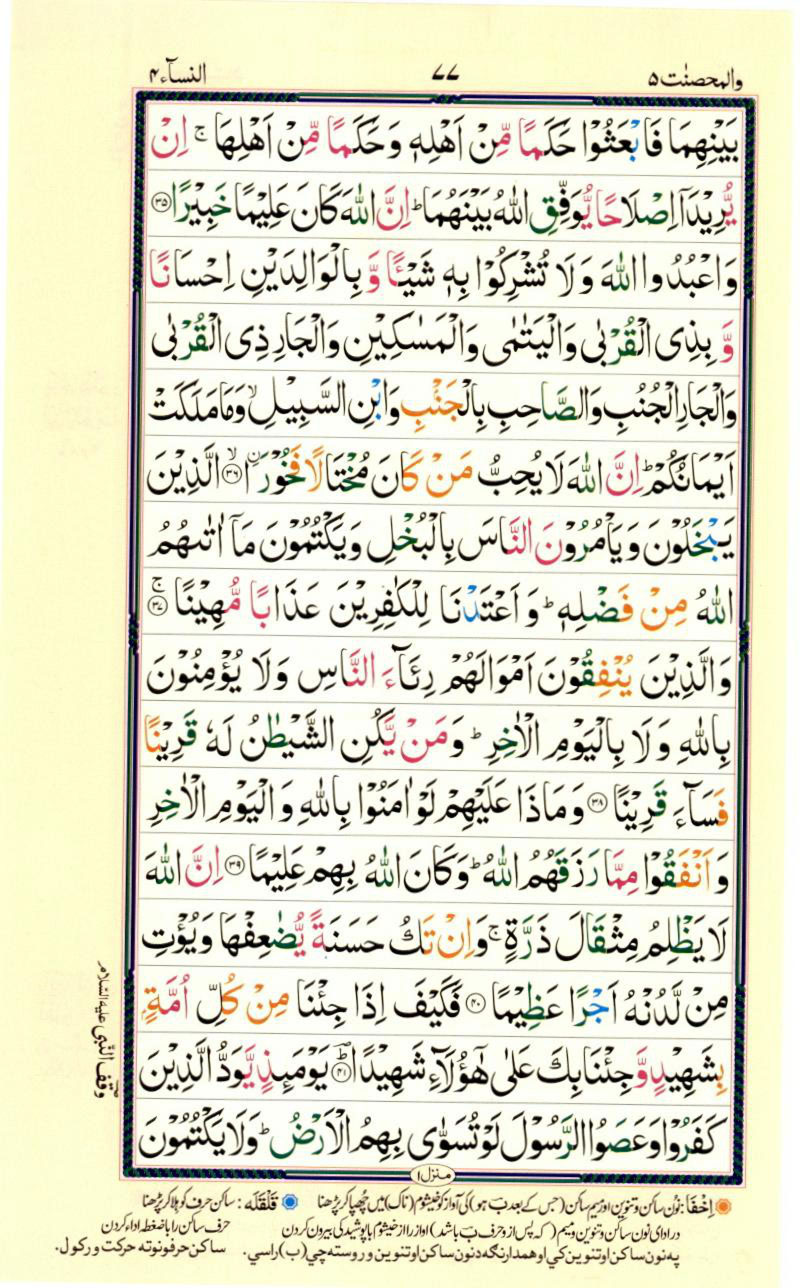 والمحصنٰت ۵ ۷۷ النسآء ۴
بَيْنِهِمَا فَابْعَثُوْا حَكَمًا مِّنْ اَهْلِهٖ وَحَكَمًا مِّنْ اَهْلِهَا ۚ اِنْ
يُّرِيْدَاۤ اِصْلَاحًا يُّوَفِّقِ اللّٰهُ بَيْنَهُمَا ؕ اِنَّ اللّٰهَ كَانَ عَلِيْمًا خَبِيْرًا ۝۳۵
وَاعْبُدُوا اللّٰهَ وَلَا تُشْرِكُوْا بِهٖ شَيْـًٔا وَّ بِالْوَالِدَيْنِ اِحْسَانًا
وَّ بِذِى الْقُرْبٰى وَالْيَتٰمٰى وَالْمَسٰكِيْنِ وَالْجَارِ ذِى الْقُرْبٰى
وَالْجَارِ الْجُنُبِ وَالصَّاحِبِ بِالْجَنْۢبِ وَابْنِ السَّبِيْلِ ۙ وَمَا مَلَكَتْ
اَيْمَانُكُمْ ؕ اِنَّ اللّٰهَ لَا يُحِبُّ مَنْ كَانَ مُخْتَالًا فَخُوْرَا ۙ۝۳۶ ۨالَّذِيْنَ
يَبْخَلُوْنَ وَيَاْمُرُوْنَ النَّاسَ بِالْبُخْلِ وَيَكْتُمُوْنَ مَاۤ اٰتٰىهُمُ
اللّٰهُ مِنْ فَضْلِهٖ ؕ وَاَعْتَدْنَا لِلْكٰفِرِيْنَ عَذَابًا مُّهِيْنًا ۚ۝۳۷
وَالَّذِيْنَ يُنْفِقُوْنَ اَمْوَالَهُمْ رِئَآءَ النَّاسِ وَلَا يُؤْمِنُوْنَ
بِاللّٰهِ وَلَا بِالْيَوْمِ الْاٰخِرِ ؕ وَمَنْ يَّكُنِ الشَّيْطٰنُ لَهٗ قَرِيْنًا
فَسَآءَ قَرِيْنًا ۝۳۸ وَمَاذَا عَلَيْهِمْ لَوْ اٰمَنُوْا بِاللّٰهِ وَالْيَوْمِ الْاٰخِرِ
وَاَنْفَقُوْا مِمَّا رَزَقَهُمُ اللّٰهُ ؕ وَكَانَ اللّٰهُ بِهِمْ عَلِيْمًا ۝۳۹ اِنَّ اللّٰهَ
لَا يَظْلِمُ مِثْقَالَ ذَرَّةٍ ۚ وَاِنْ تَكُ حَسَنَةً يُّضٰعِفْهَا وَيُؤْتِ
مِنْ لَّدُنْهُ اَجْرًا عَظِيْمًا ۝۴۰ فَكَيْفَ اِذَا جِئْنَا مِنْ كُلِّ اُمَّةٍۭ
بِشَهِيْدٍ وَّجِئْنَا بِكَ عَلٰى هٰۤؤُلَآءِ شَهِيْدًا ؕ۝۴۱ يَوْمَئِذٍ يَّوَدُّ الَّذِيْنَ
كَفَرُوْا وَعَصَوُا الرَّسُوْلَ لَوْ تُسَوّٰى بِهِمُ الْاَرْضُ ؕ وَلَا يَكْتُمُوْنَ
وقف النبی علیہ السلام
منزل ۱
اِخْفَا: نُون ساکن و تنوین اور میم ساکن (جس کے بعد بَ ہو) کی آواز کو خیشوم (ناک) میں چُھپا کر پڑھنا قَلْقَلَه: ساکن حرف کو ہلا کر پڑھنا
در ادای نون ساکن و تنوین و میم (که پس از و حرف بَ باشد) اواز را از خیشوم با پوشیدگی بیرون کردن حرف ساکن را با ضغطه اداء کردن
په نون ساکن او تنوین کي او همدارنګه د نون ساکن او تنوین و روسته چي (ب) راسي. ساکن حرفونو ته حرکت ورکول.